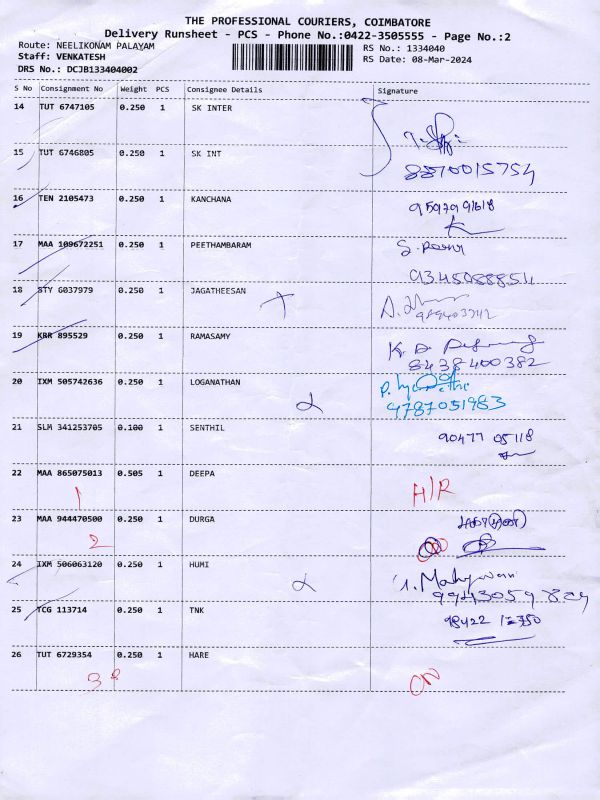 THE PROFESSIONAL COURIERS, COIMBATORE
Delivery Runsheet - PCS - Phone No.:0422-3505555 - Page No.:2
Route: NEELIKONAM PALAYAM RS No.: 1334040
Staff: VENKATESH RS Date: 08-Mar-2024
DRS No.: DCJB133404002
S No Consignment No Weight PCS Consignee Details Signature
14 TUT 6747105 0.250 1 SK INTER
15 TUT 6746805 0.250 1 SK INT
8870015754
16 TEN 2105473 0.250 1 KANCHANA
95979 91618
17 MAA 109672251 0.250 1 PEETHAMBARAM
9345088854
18 STY 6037979 0.250 1 JAGATHEESAN
19 KRR 895529 0.250 1 RAMASAMY
8438400382
20 IXM 505742636 0.250 1 LOGANATHAN
4787051983
21 SLM 341253705 0.100 1 SENTHIL
90477 05118
22 MAA 865075013 0.505 1 DEEPA
1 H/R
23 MAA 944470500 0.250 1 DURGA
2
24 IXM 506063120 0.250 1 HUMI
9943059829
25 TCG 113714 0.250 1 TNK
98422 12350
26 TUT 6729354 0.250 1 HARE
3